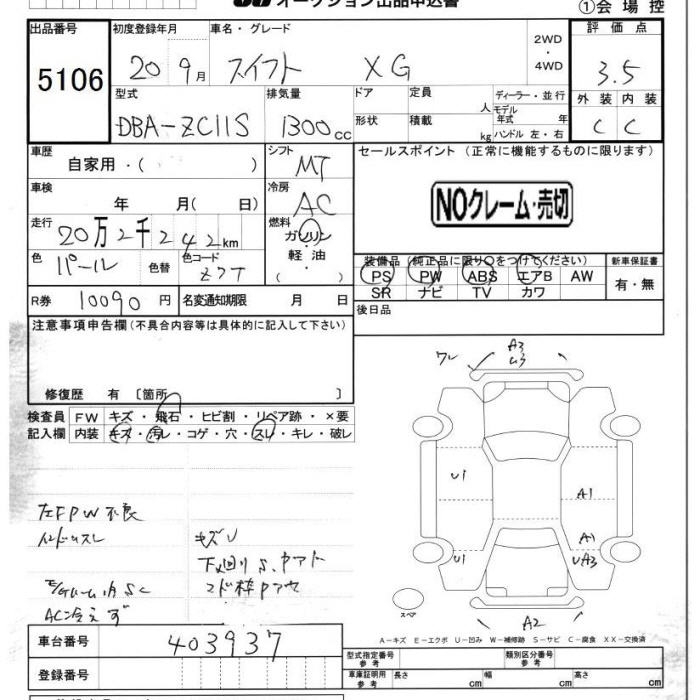 オークション出品申込書
①会場控
出品番号 初度登録年月 車名・グレード 評価点
5106 20 9月 スイフト XG 2WD・4WD 3.5
型式 排気量 ドア 定員 人 ディーラー・並行 外装 内装
DBA-ZC11S 1300cc 形状 積載 kg モデル年式 年 ハンドル 左・右 C C
車歴 自家用・( ) シフト MT セールスポイント (正常に機能するものに限ります)
車検 年 月( 日) 冷房 AC NOクレーム・売切
走行 20万2千242km 燃料 ガソリン・軽油
色 パール 色替 色コード Z7T ( )
装備品 (純正品に限り○をつけてください) 新車保証書
PS PW ABS エアB AW 有・無
SR ナビ TV カワ
R券 10090円 名変通知期限 月 日 後日品
注意事項申告欄(不具合内容等は具体的に記入して下さい)
修復歴 有 〔箇所 〕
検査員 FW キズ・飛石・ヒビ割・リペア跡・×要
記入欄 内装 キズ・汚レ・コゲ・穴・スレ・キレ・破レ
ワレ A3
U1 A1
A1
U1 UA3
スペア A2
左FPW不良
キズU
AC冷えず
A-キズ E-エクボ U-凹み W-補修跡 S-サビ C-腐食 XX-交換済
車台番号 403937 型式指定番号 参考 類別区分番号 参考
登録番号 車庫証明用 参考 長さ cm 幅 cm 高さ cm